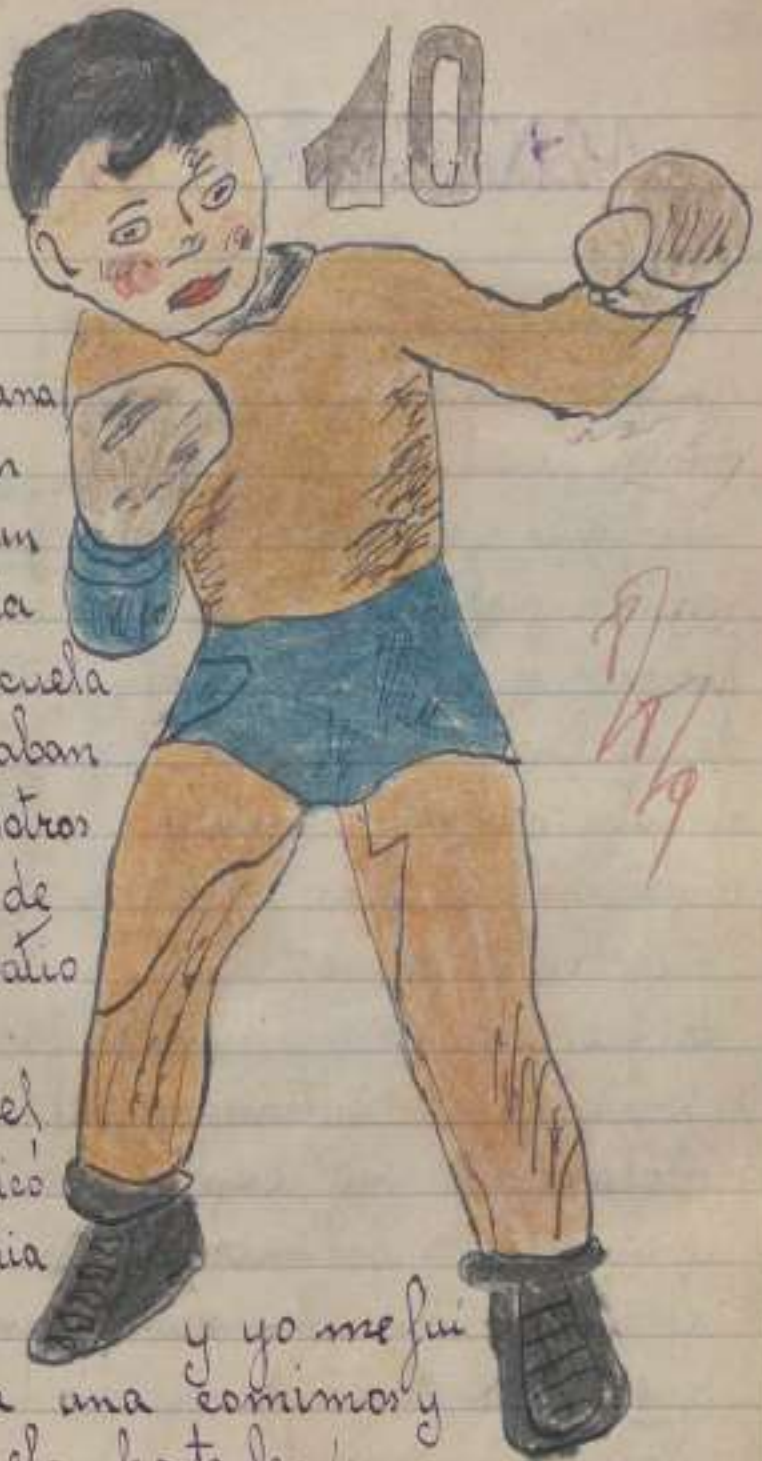 10
ana
n
un
a
cuela
aban
otros
de
atio
el
icó
ia
y yo me fui
a una comimos y